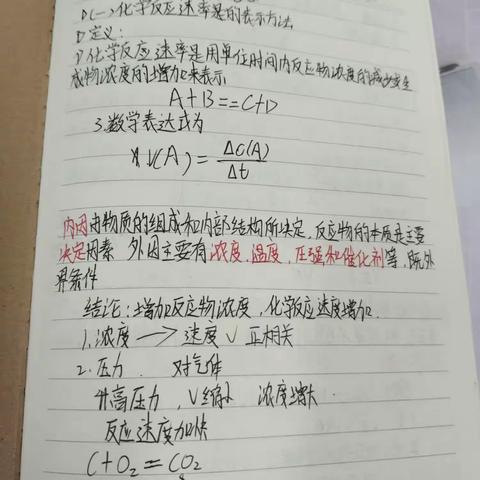 (一)化学反应速率是的表示方法
1)定义:
1)化学反应速率是用单位时间内反应物浓度的减少或生
成物浓度的增加来表示
A+B==C+D
3.数学表达式为
v(A)=Δc(A)/Δt
内因由物质的组成和内部结构所决定,反应物的本质是主要
决定因素 外因主要有浓度,温度,压强和催化剂等,既外
界条件
结论:增加反应物浓度,化学反应速度增加.
1.浓度 → 速度v 正相关
2.压力. 对气体
升高压力,V缩小 浓度增大.
反应速度加快
C+O2=CO2